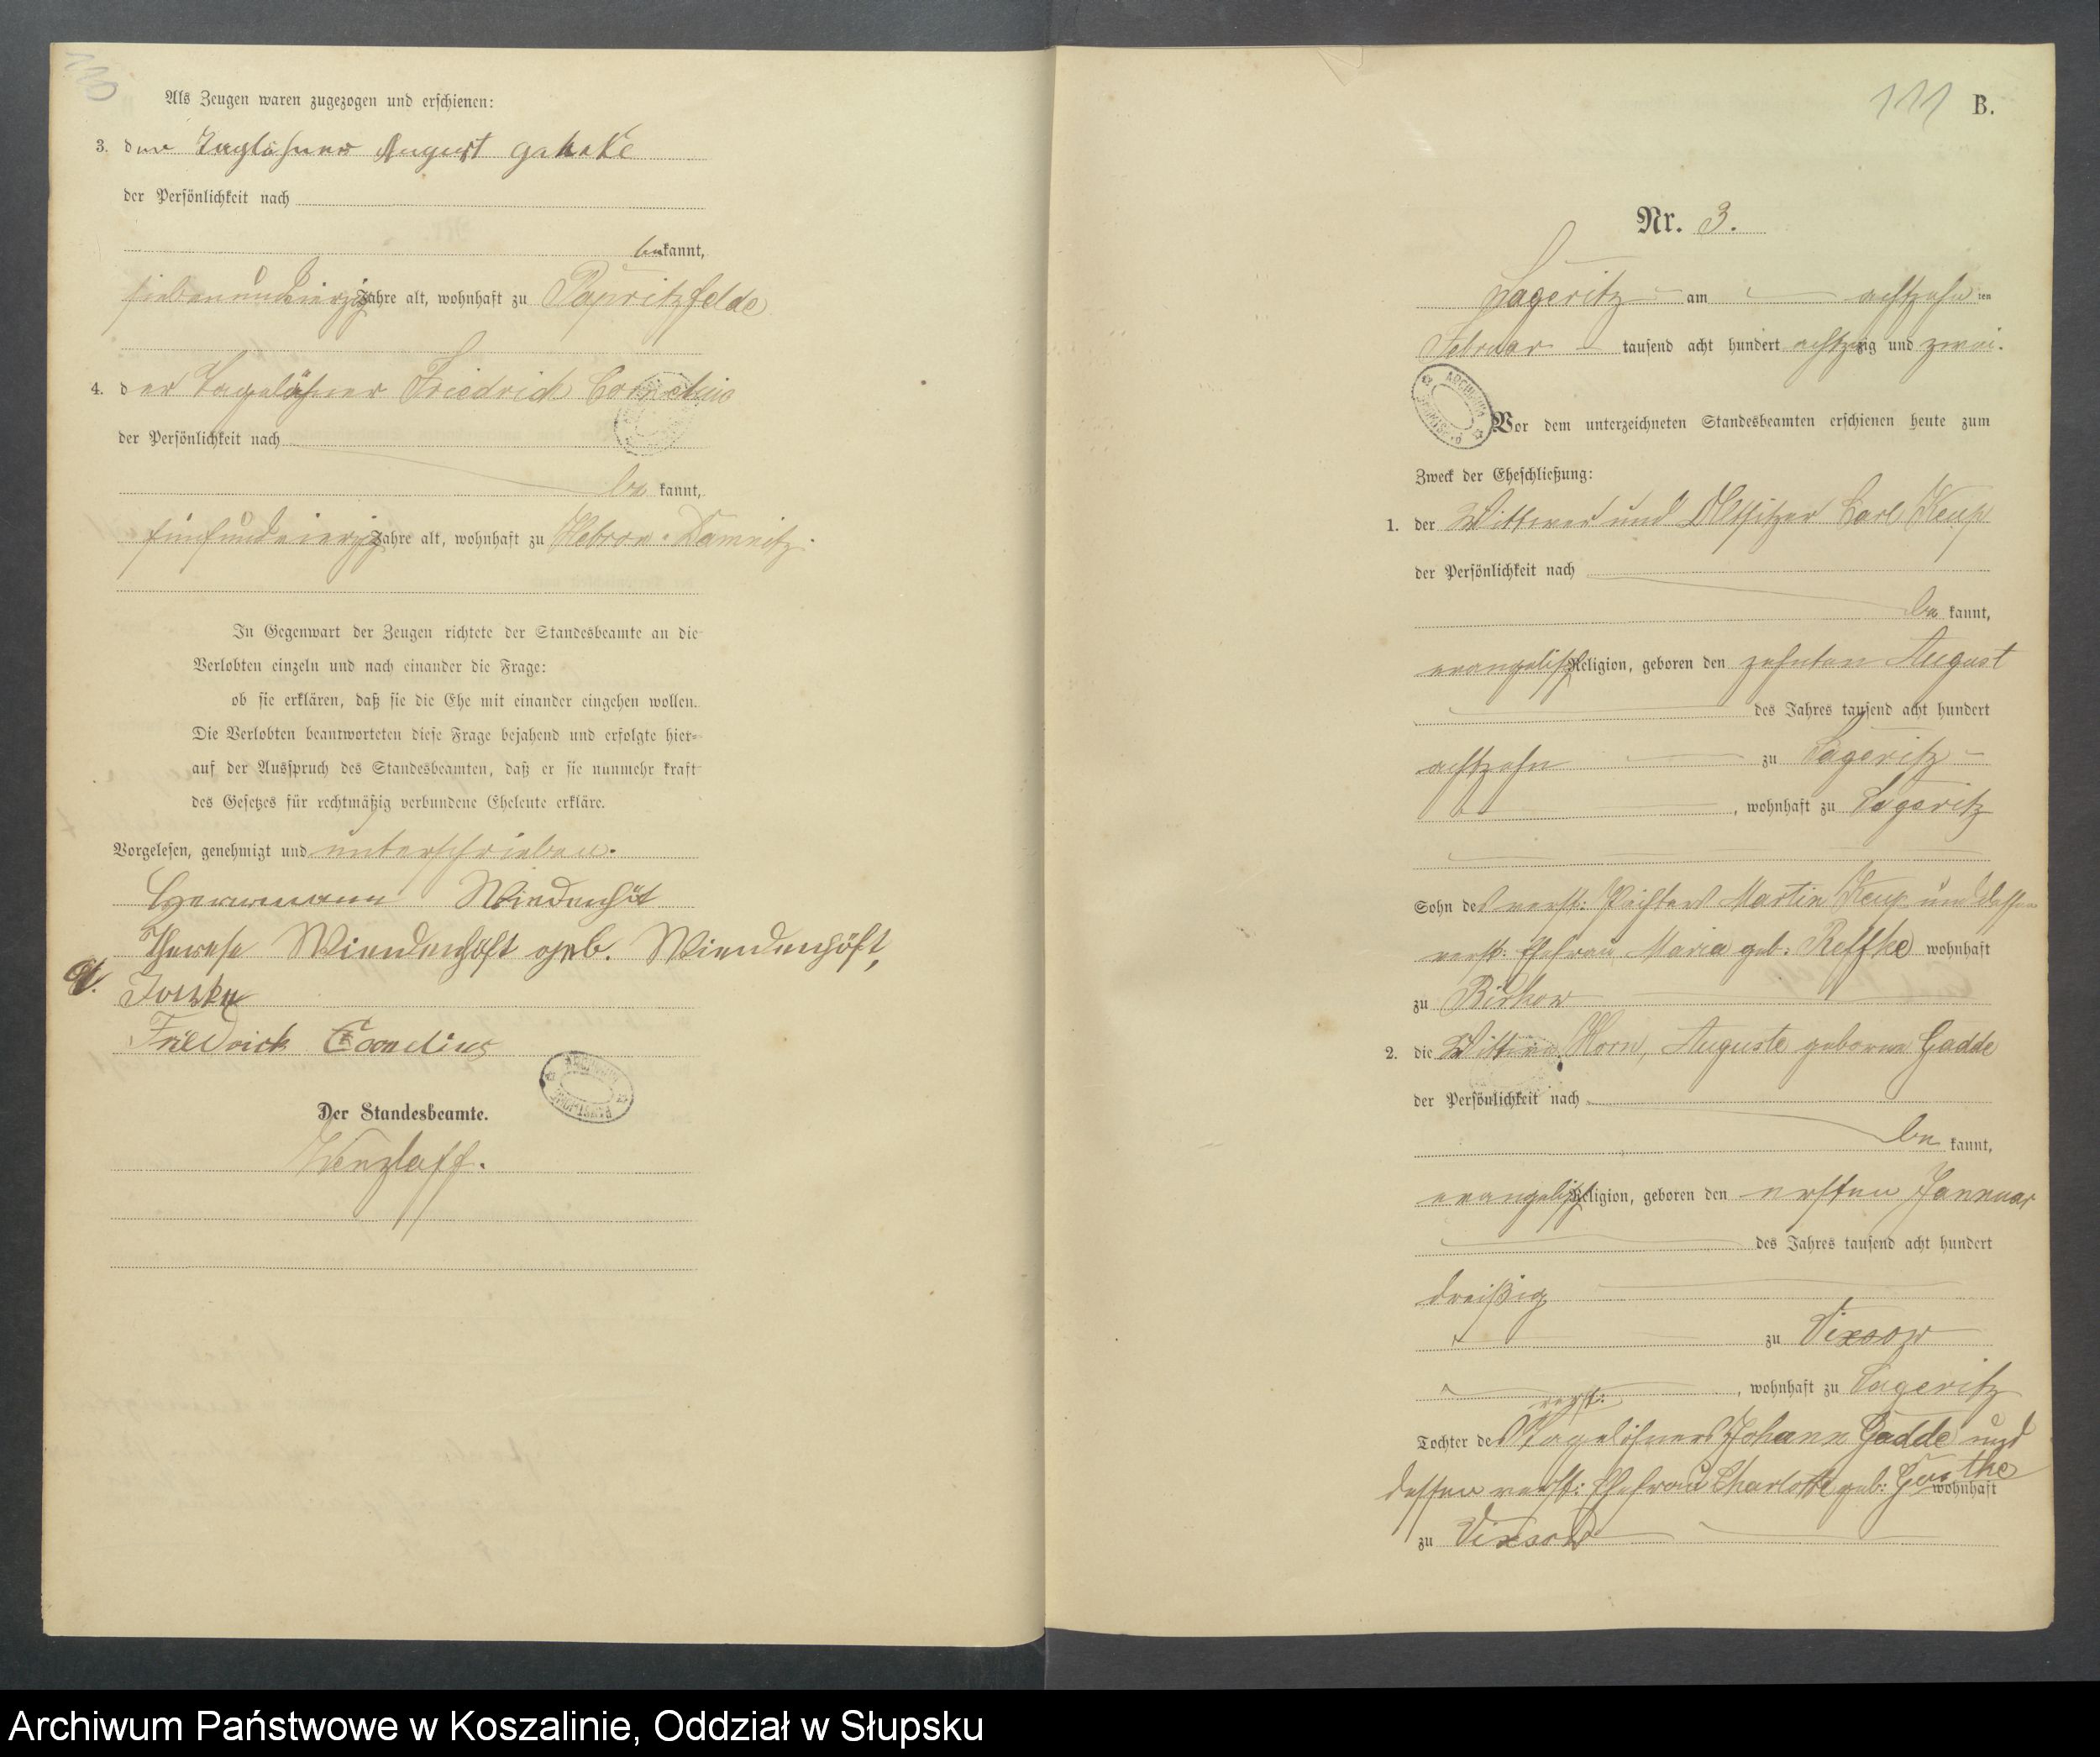 Als Zeugen waren zugezogen und erschienen:
3. der Taglöhner August
der Persönlichkeit nach
bekannt,
siebenundvierzig Jahre alt, wohnhaft zu Papritzfelde
4. der Tagelöhner Friedrich Cornelius
der Persönlichkeit nach
be kannt,
fünfundvierzig Jahre alt, wohnhaft zu Hebron-Damnitz.
In Gegenwart der Zeugen richtete der Standesbeamte an die
Verlobten einzeln und nach einander die Frage:
ob sie erklären, daß sie die Ehe mit einander eingehen wollen.
Die Verlobten beantworteten diese Frage bejahend und erfolgte hier-
auf der Ausspruch des Standesbeamten, daß er sie nunmehr kraft
des Gesetzes für rechtmäßig verbundene Eheleute erkläre.
Vorgelesen, genehmigt und unterschrieben.
Herrmann
Therese Wiendenhöft geb. Wiendenhöft,
A.
Friedrick Cornelius
Der Standesbeamte.
Wenzlaff.
111 B.
Nr. 3.
Lageritz am achtzehn ten
Februar tausend acht hundert achtzig und zwei.
Vor dem unterzeichneten Standesbeamten erschienen heute zum
Zweck der Eheschließung:
1. der Wittwer und Carl Keup
der Persönlichkeit nach
be kannt,
evangelisch Religion, geboren den zehnten August
des Jahres tausend acht hundert
achtzehn zu Lageritz
, wohnhaft zu Lageritz
Sohn des verst: Pächters Martin Keup und dessen
verst: Ehefrau Maria geb: Reffke wohnhaft
zu Birkow
2. die Wittwe Horn, Auguste geborne Gadde
der Persönlichkeit nach
be kannt,
evangelisch Religion, geboren den ersten Januar
des Jahres tausend acht hundert
dreißig
zu Vixsow
, wohnhaft zu Lageritz
verst:
Tochter des Tagelöhners Johann Gadde und
dessen verst: Ehefrau Charlotte geb: wohnhaft
zu Vixsow
Archiwum Państwowe w Koszalinie, Oddział w Słupsku